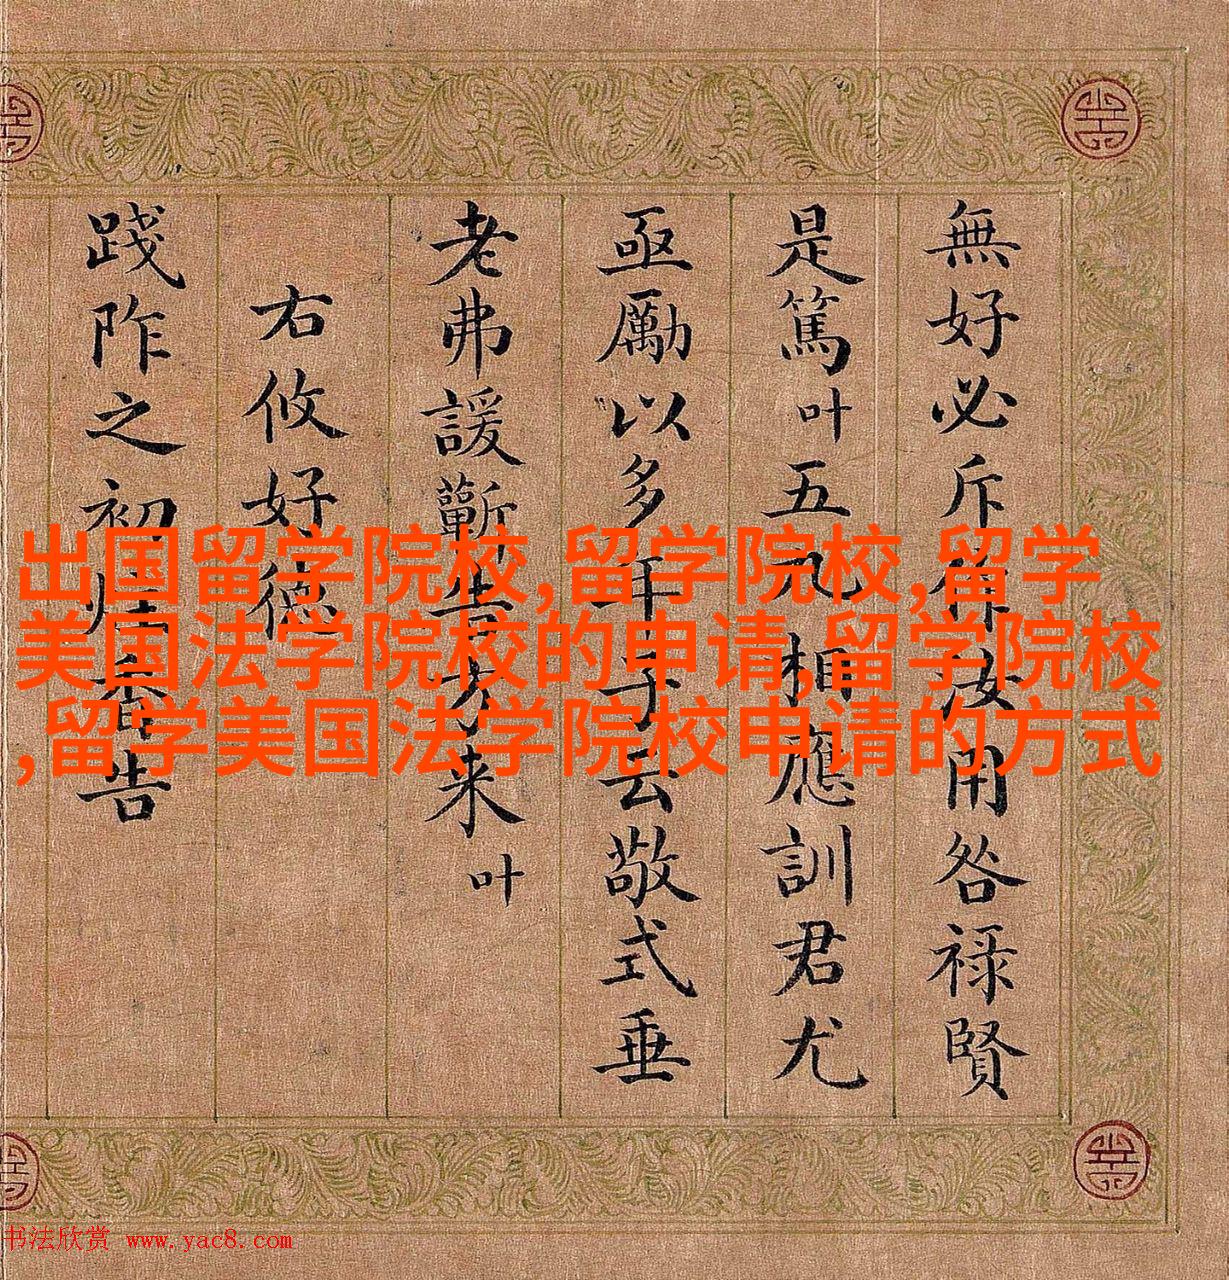 無好必斥作汝用咎禄賢
是篤叶五九相應訓君尤
亟勵以多年子云敬式垂
老弗諼蘄告方来叶
右攸好德
践阼之初
告
出国留学院校,留学院校,留学
美国法学院校的申请,留学院校
,留学美国法学院校申请的方式
书法欣赏 www.yac8.com